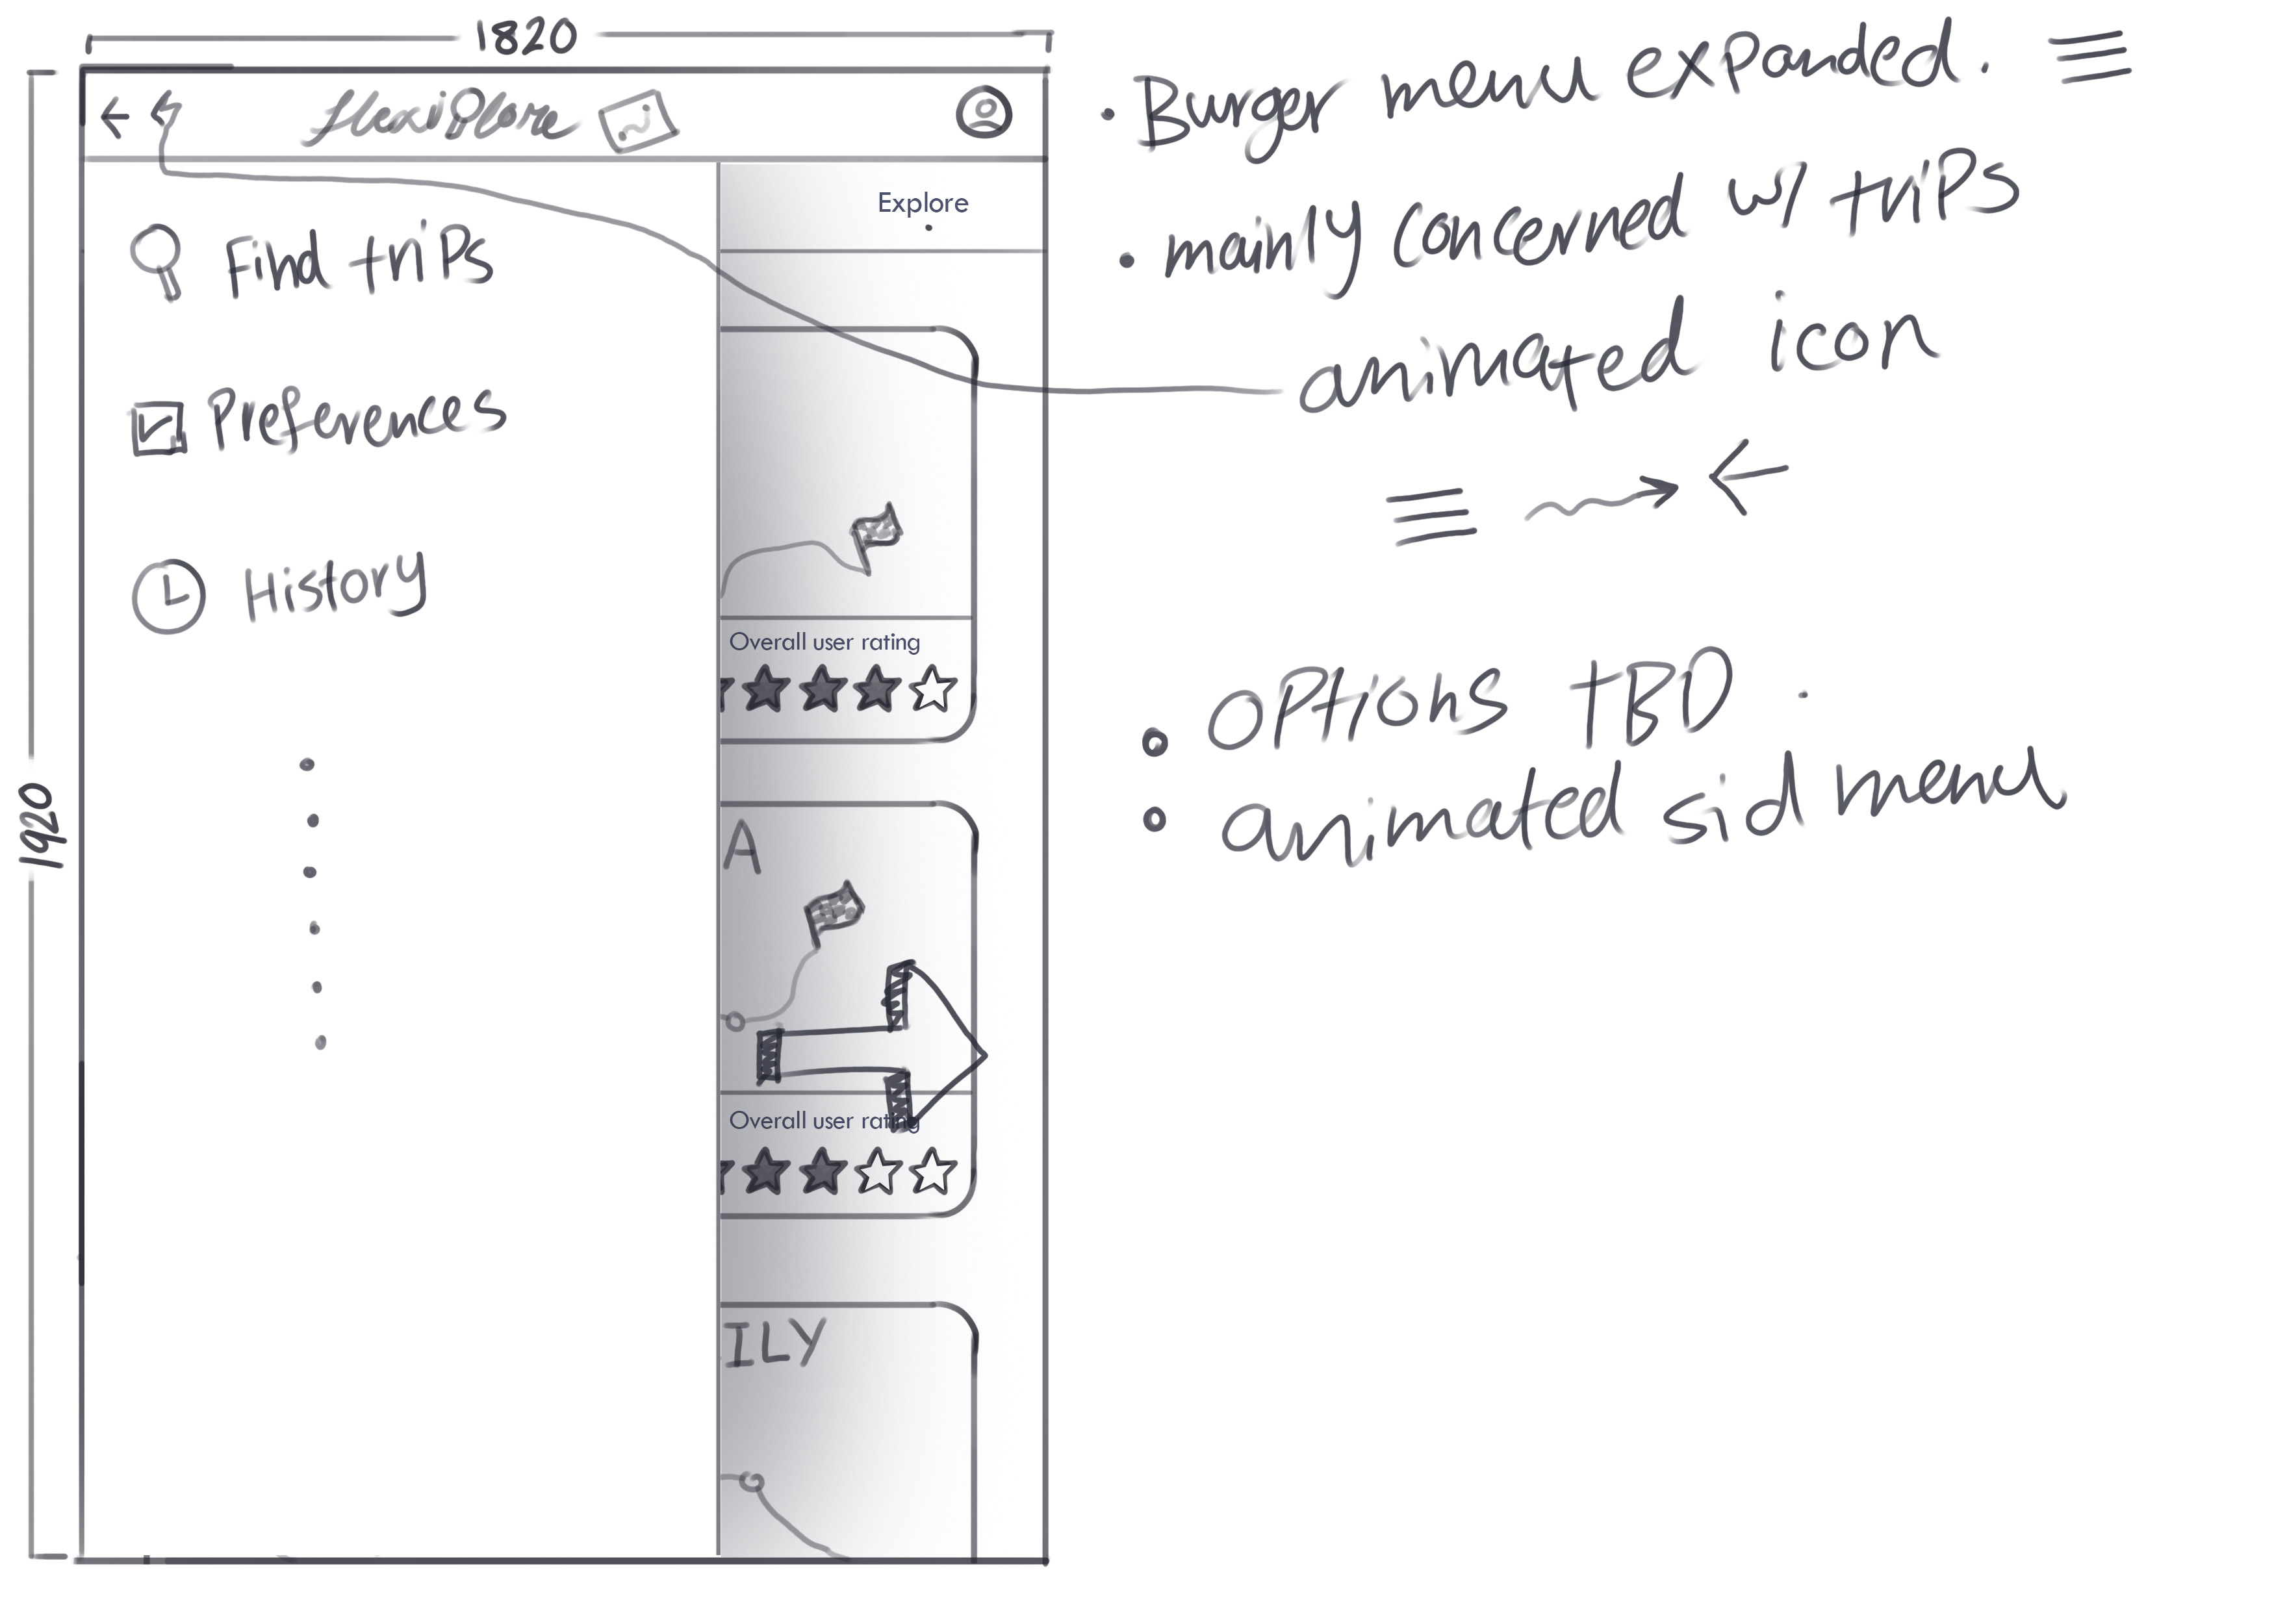 1820
1920
FlexiPlore
Explore
Find trips
Preferences
History
Overall user rating
A
Overall user rating
ILY
• Burger menu expanded.
• mainly concerned w/ trips
animated icon
• options TBD.
• animated sid menu